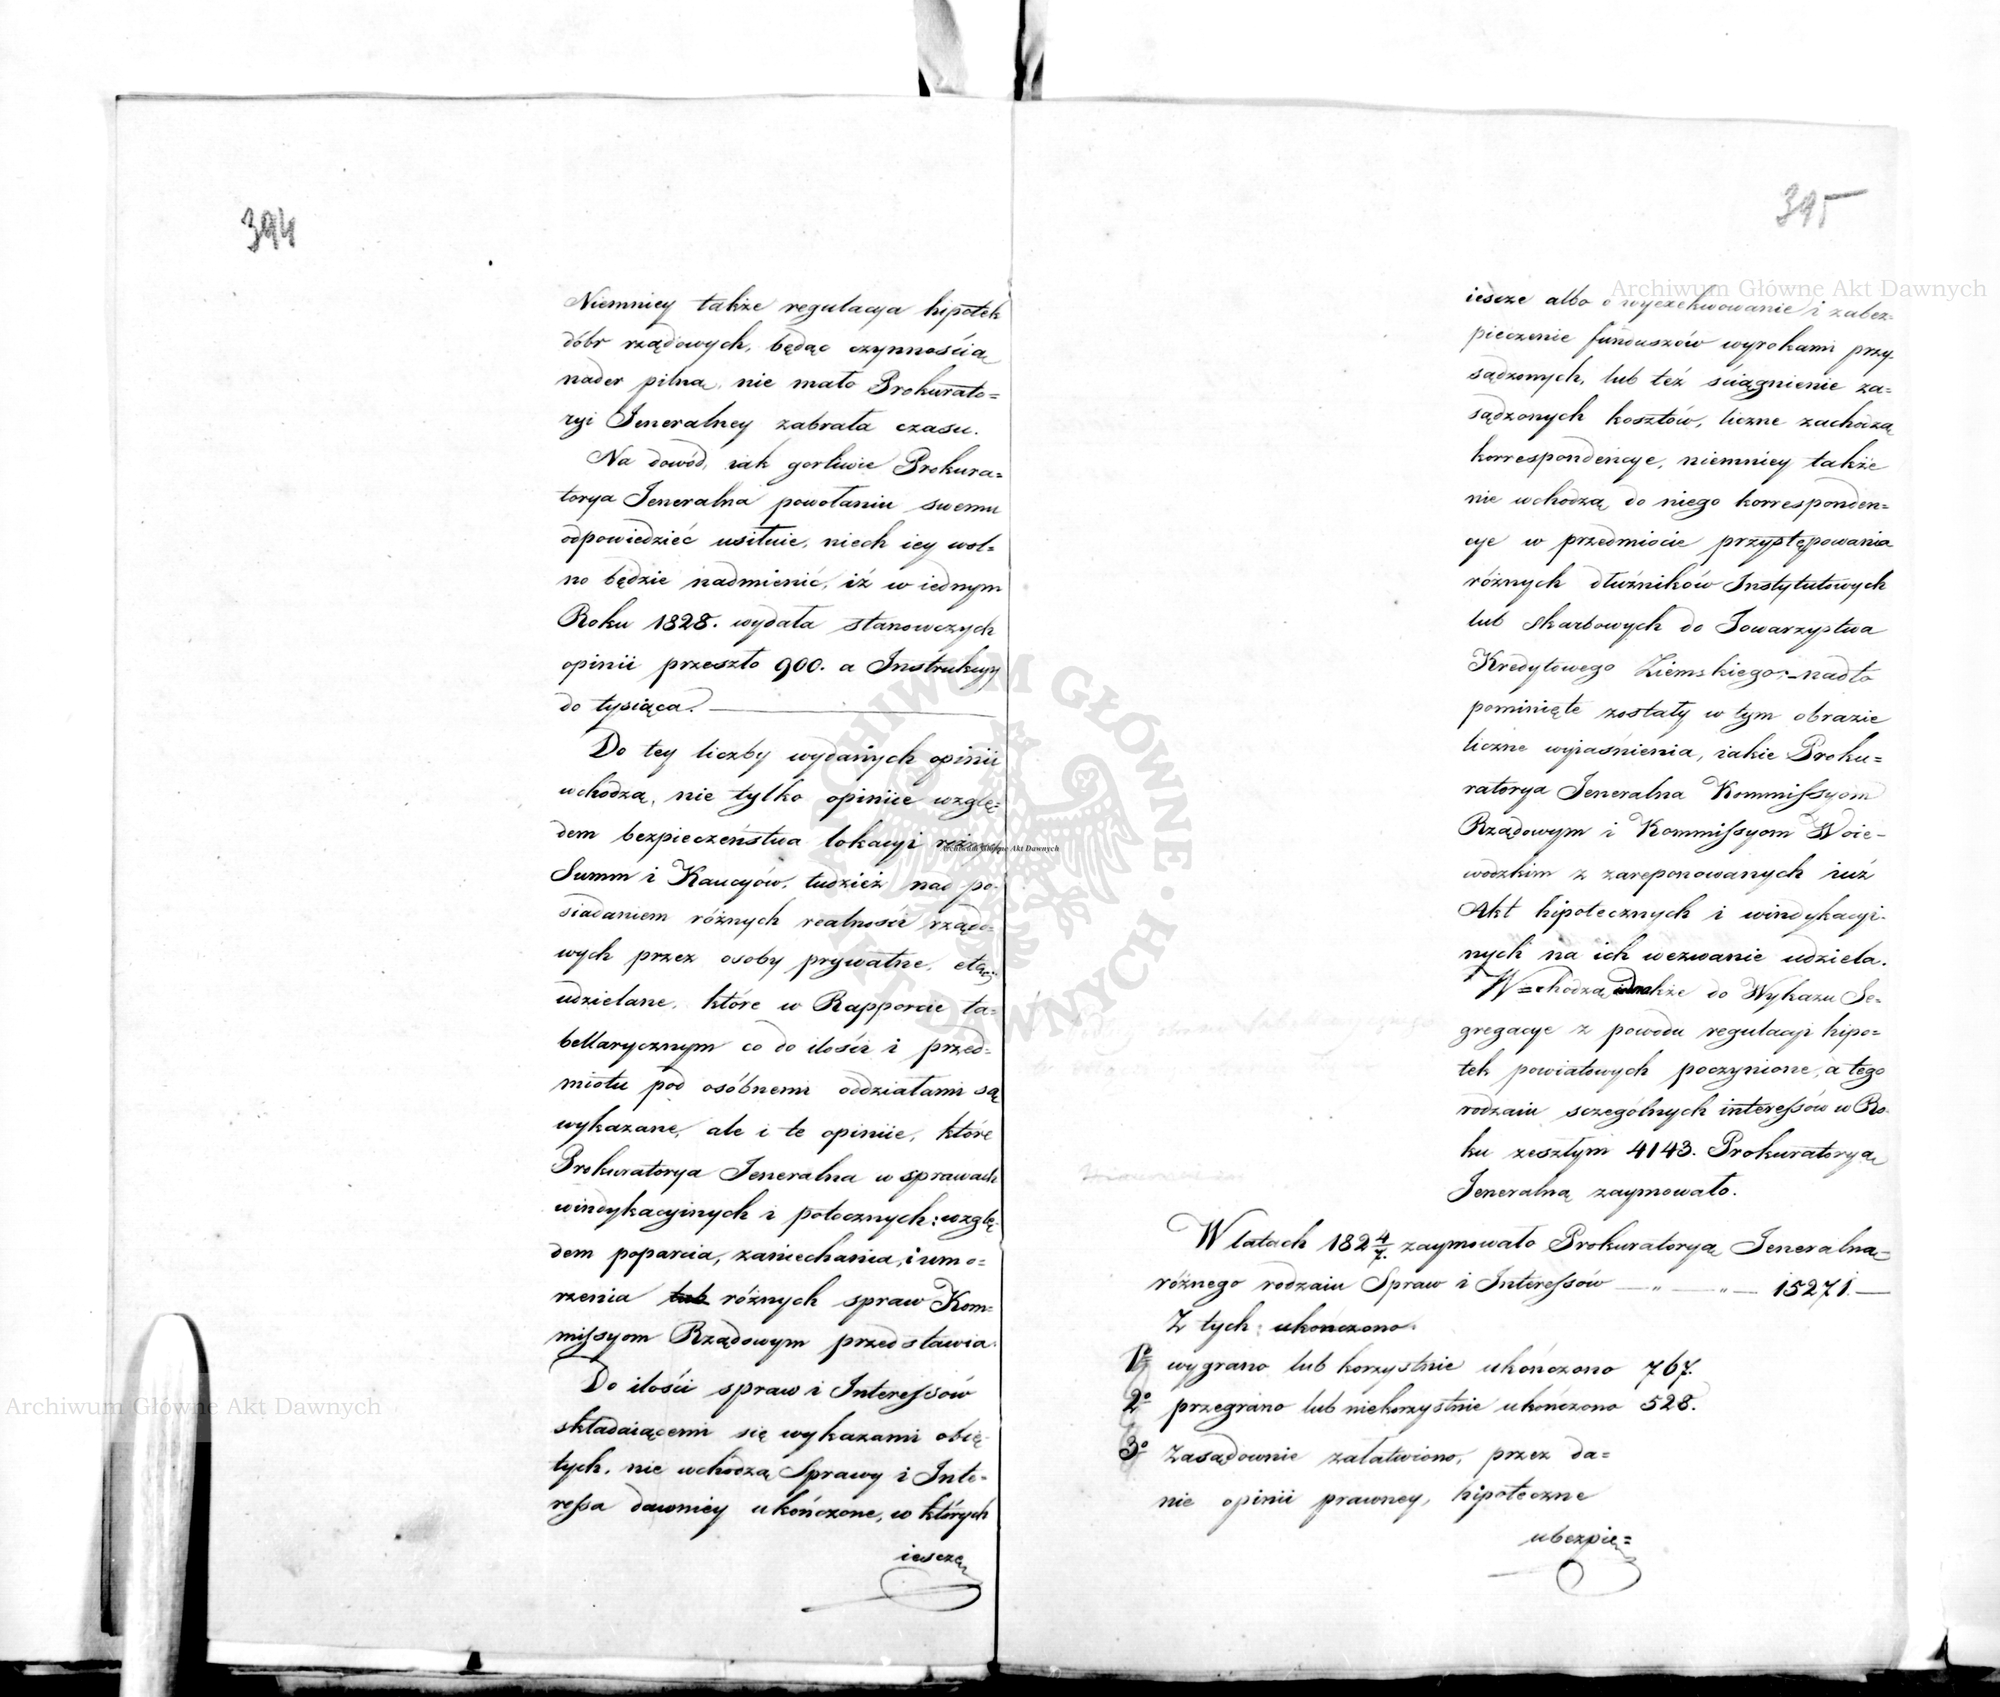 394
Niemniey także regulacya hipotek
dóbr rządowych, będąc czynnością
nader pilną, nie mało Prokurato=
ryi Jeneralney zabrała czasu.
Na dowód, iak gorliwie Prokura=
torya Jeneralna powołaniu swemu
odpowiedzieć usiłuie, niech iey wol=
no będzie nadmienić, iż w iednym
Roku 1828. wydała stanowczych
opinii przeszło 900. a Instrukcyy
do tysiąca.
Do tey liczby wydanych opinii
wchodzą, nie tylko opiniie wzglę=
dem bezpieczeństwa lokacyi różnych
Summ i Kaucyów, tudzież nad po=
siadaniem różnych realności rządo=
wych przez osoby prywatne, etc;
udzielane, które w Rapporcie ta=
bellarycznym co do ilości i przed=
miotu pod osóbnemi oddziałami są
wykazane, ale i te opiniie, które
Prokuratorya Jeneralna w sprawach
windykacyinych i potocznych: wzglę=
dem poparcia, zaniechania, i umo=
rzenia lub różnych spraw Kom=
missyom Rządowym przedstawia.
Do ilości spraw i Interessów
składaiącemi się wykazami obię=
tych, nie wchodzą Sprawy i Inte=
ressa dawniey ukończone, w których
iescze
395
iescze albo o wyexekwowanie i zabez=
pieczenie funduszów wyrokami przy=
sądzonych, lub też ściągnienie za=
sądzonych kosztów, liczne zachodzą
korrespondencye, niemniey także
nie wchodzą do niego korresponden=
cye w przedmiocie przystępowania
różnych dłużników Instytutowych
lub skarbowych do Towarzystwa
Kredytowego Ziemskiego;-nadto
pominięte zostały w tym obrazie
liczne wyiaśnienia, iakie Proku=
ratorya Jeneralna Kommissyom
Rządowym i Kommissyom Woie-
wodzkim z zareponowanych iuż
Akt hipotecznych i windykacyi-
nych na ich wezwanie udziela.
Wchodzą iednakże do Wykazu Se=
gregacye z powodu regulacyi hipo=
tek powiatowych poczynione, a tego
rodzaiu sczególnych interessów w Ro=
ku zeszłym 4143. Prokuratoryą
Jeneralną zaymowało.
W latach 182 4/7. zaymowało Prokuratoryą Jeneralną
różnego rodzaiu Spraw i Interessów — „ — „ — 15271. —
Z tych ukończono.
1º wygrano lub korzystnie ukończono 767.
2º przegrano lub niekorzystnie ukończono 528.
3º Zasądownie załatwiono, przez da=
nie opinii prawney, hipoteczne
ubezpie=
Archiwum Główne Akt Dawnych
Archiwum Główne Akt Dawnych
Archiwum Główne Akt Dawnych
ARCHIWUM GŁÓWNE • AKT DAWNYCH •